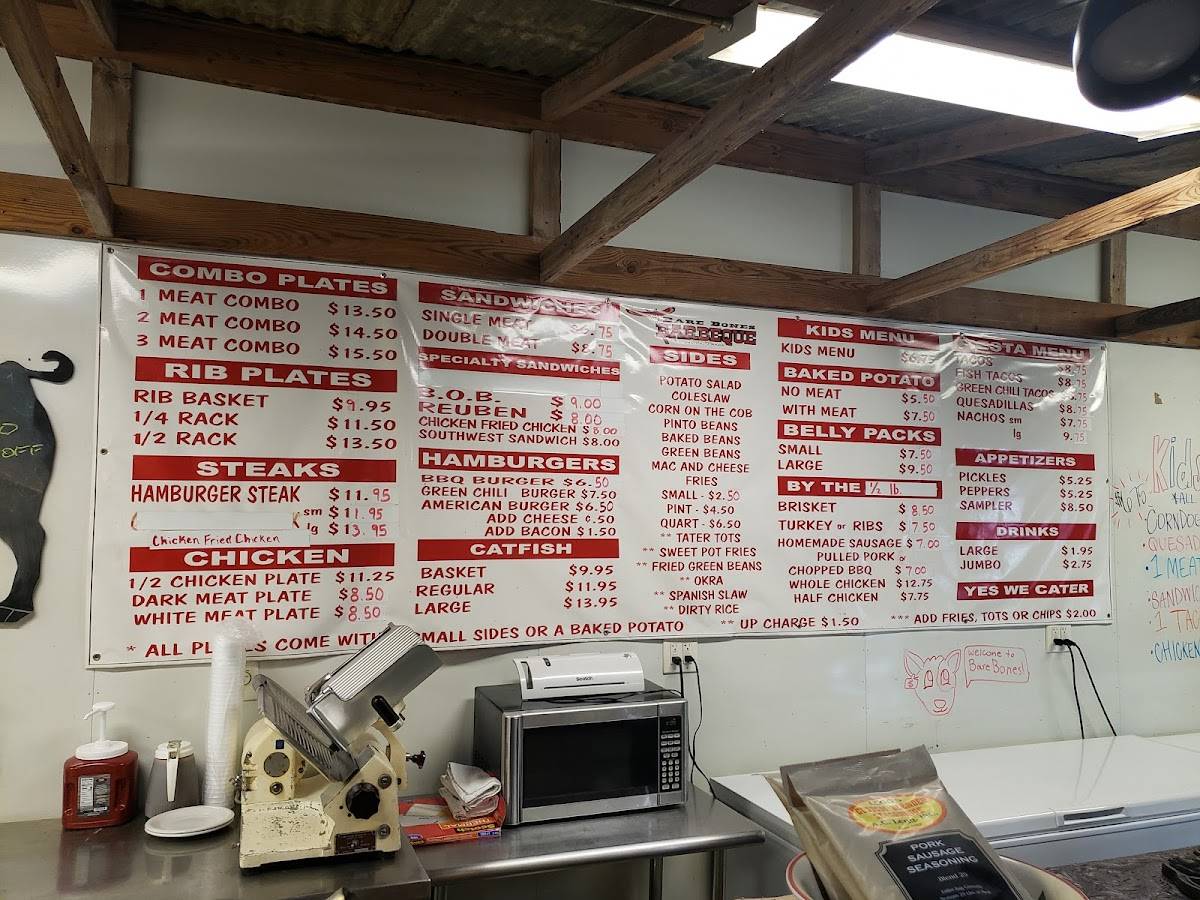 COMBO PLATES
1 MEAT COMBO $13.50
2 MEAT COMBO $14.50
3 MEAT COMBO $15.50
RIB PLATES
RIB BASKET $9.95
1/4 RACK $11.50
1/2 RACK $13.50
STEAKS
HAMBURGER STEAK $11.95
sm $11.95
lg $13.95
Chicken Fried Chicken
CHICKEN
1/2 CHICKEN PLATE $11.25
DARK MEAT PLATE $8.50
WHITE MEAT PLATE $8.50
SANDWICHES
SINGLE MEAT $6.75
DOUBLE MEAT $8.75
SPECIALTY SANDWICHES
B.O.B. $9.00
REUBEN $8.00
CHICKEN FRIED CHICKEN $8.00
SOUTHWEST SANDWICH $8.00
HAMBURGERS
BBQ BURGER $6.50
GREEN CHILI BURGER $7.50
AMERICAN BURGER $6.50
ADD CHEESE ¢.50
ADD BACON $1.50
CATFISH
BASKET $9.95
REGULAR $11.95
LARGE $13.95
BARE BONES
BARBEQUE
SIDES
POTATO SALAD
COLESLAW
CORN ON THE COB
PINTO BEANS
BAKED BEANS
GREEN BEANS
MAC AND CHEESE
FRIES
SMALL - $2.50
PINT - $4.50
QUART - $6.50
** TATER TOTS
** SWEET POT FRIES
** FRIED GREEN BEANS
** OKRA
** SPANISH SLAW
** DIRTY RICE
KIDS MENU
KIDS MENU $6.75
BAKED POTATO
NO MEAT $5.50
WITH MEAT $7.50
BELLY PACKS
SMALL $7.50
LARGE $9.50
BY THE 1/2 lb.
BRISKET $8.50
TURKEY or RIBS $7.50
HOMEMADE SAUSAGE $7.00
PULLED PORK or
CHOPPED BBQ $7.00
WHOLE CHICKEN $12.75
HALF CHICKEN $7.75
MENU
TACOS $8.75
FISH TACOS $8.75
GREEN CHILI TACOS
QUESADILLAS $8.75
NACHOS sm $7.75
lg 9.75
APPETIZERS
PICKLES $5.25
PEPPERS $5.25
SAMPLER $8.50
DRINKS
LARGE $1.95
JUMBO $2.75
YES WE CATER
* ALL COME WITH SMALL SIDES OR A BAKED POTATO ** UP CHARGE $1.50 *** ADD FRIES, TOTS OR CHIPS $2.00
OFF
Kids
CORNDO
QUESAD
1 MEAT
SANDWIC
CHICKEN
welcome to
Bare Bones!
Scotch
PORK
SAUSAGE
SEASONING
Blend 20